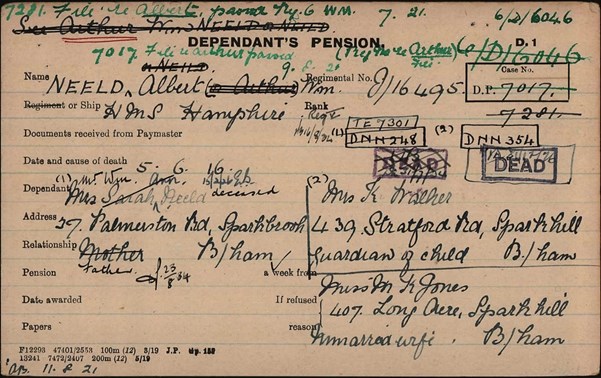 7281. File to Albert, passed Reg. 6 WM. 7. 21. 6/D/6046
See Arthur Wm NEELD or NEILD
DEPENDANT'S PENSION. D. 1
7017. File to Arthur passed 9. 8. 21 (Reg No to Arthur File) 6/D/6046
or NEILD
Name NEELD, Albert (or Arthur) Wm. Regimental No. J/16495. Case No.
D.P. 7017.
7281.
Regiment or Ship HMS Hampshire Rank
(1) TE 7301 (2)
Documents received from Paymaster DNN 248 DNN 354
DEAD DEAD
Date and cause of death 5. 6. 16
(1) Mr Wm. deceased
Dependant Mrs Sarah Ann Neeld (2) Mrs K. Walker
Address 27 Palmerston Rd, Sparkbrook 439. Stratford Rd, Sparkhill
Relationship Mother B/ham guardian of child B/ham
Father
Pension 23/8/34 a week from
Miss M K Jones
Date awarded If refused 407. Long Acre, Sparkhill
Papers reason Unmarried wife. B/ham
F12293 47401/2553 100m (12) 5/19 J.P. Gp. 152
13241 7472/2407 200m (12) 5/19
11. 8. 21